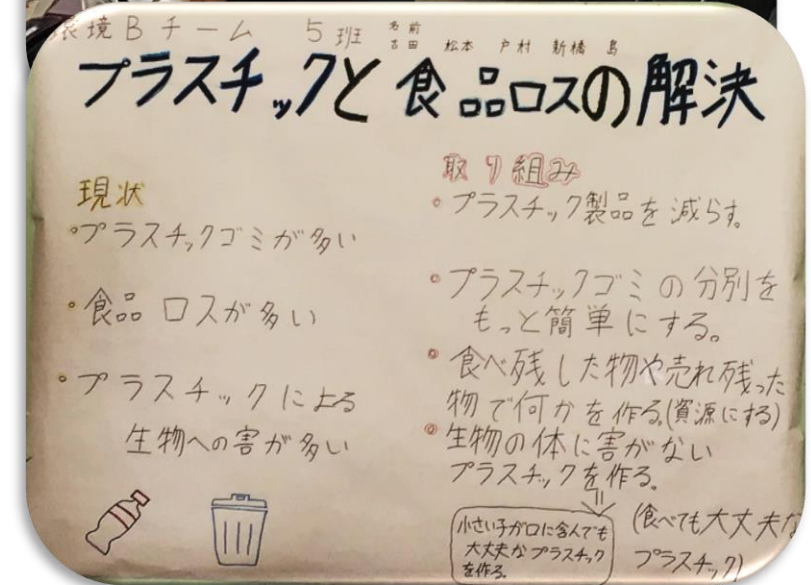 環境Bチーム 5班 名前
吉田 松本 戸村 新橋 島
プラスチックと食品ロスの解決
現状
・プラスチックゴミが多い
・食品ロスが多い
・プラスチックによる
生物への害が多い
取り組み
・プラスチック製品を減らす。
・プラスチックゴミの分別を
もっと簡単にする。
・食べ残した物や売れ残った
物で何かを作る。(資源にする)
・生物の体に害がない
プラスチックを作る。
小さい子が口に含んでも
大丈夫なプラスチック
を作る。
(食べても大丈夫な
プラスチック)